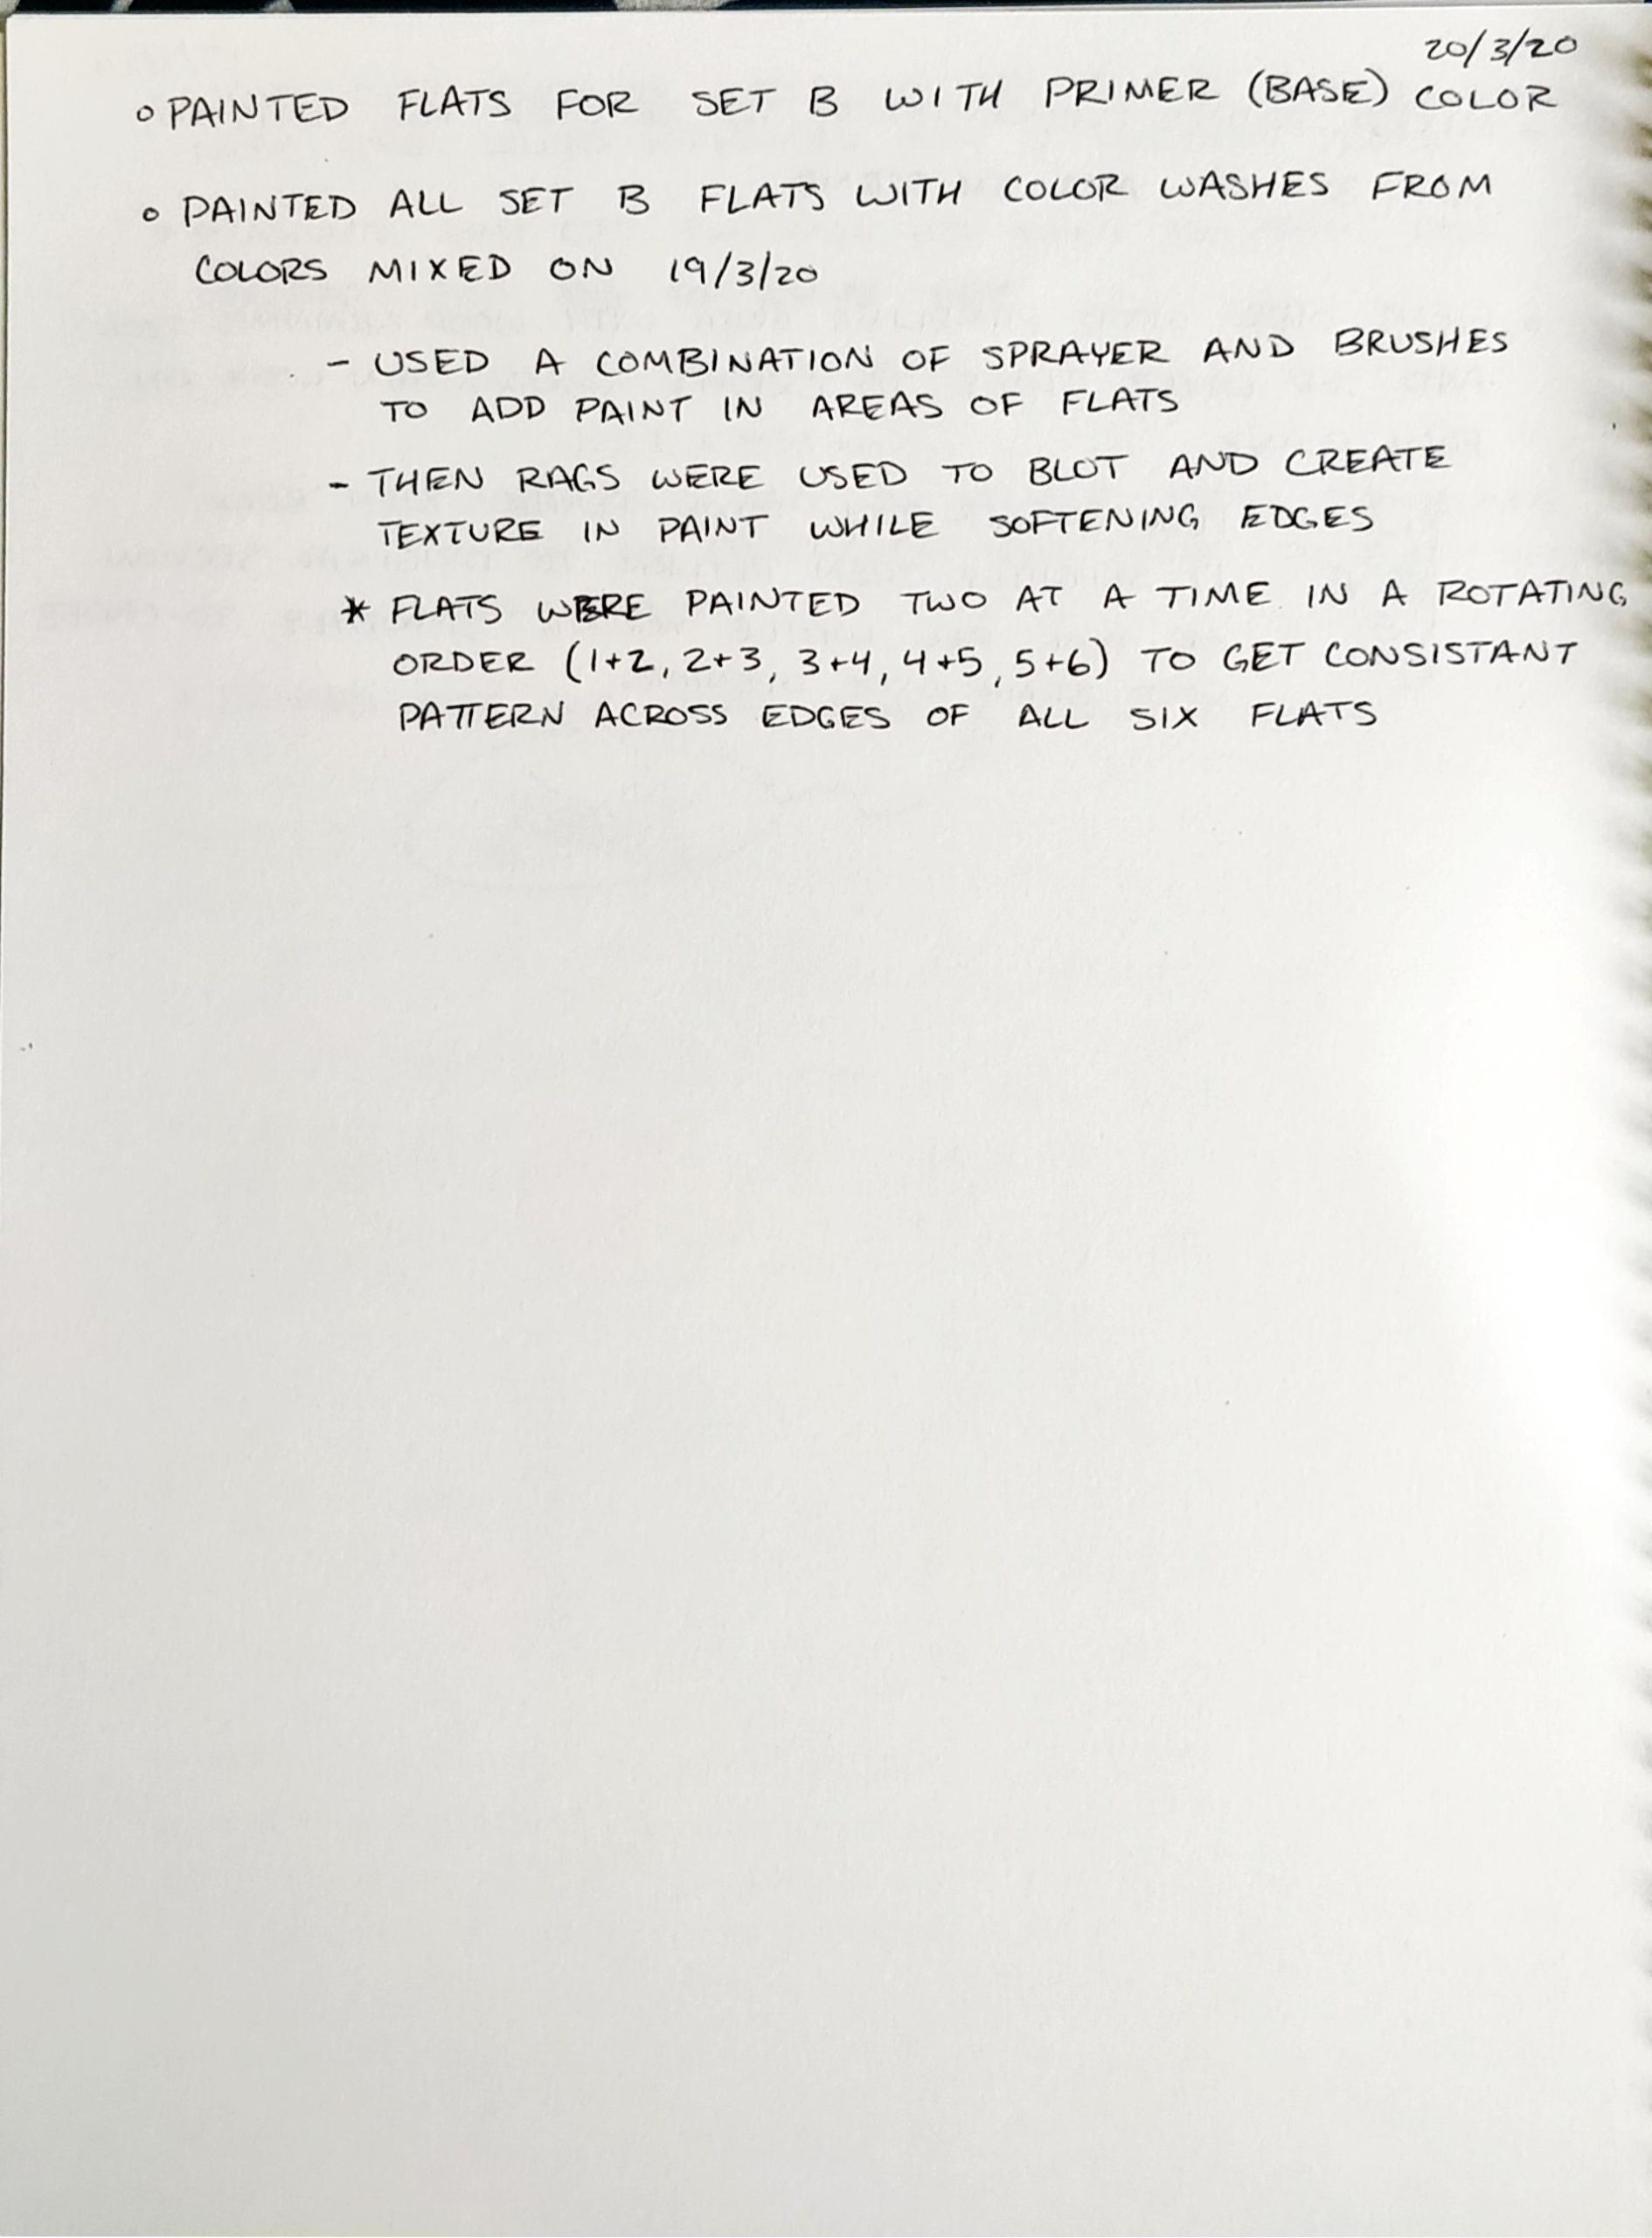 20/3/20
○ PAINTED FLATS FOR SET B WITH PRIMER (BASE) COLOR
○ PAINTED ALL SET B FLATS WITH COLOR WASHES FROM
COLORS MIXED ON 19/3/20
- USED A COMBINATION OF SPRAYER AND BRUSHES
TO ADD PAINT IN AREAS OF FLATS
- THEN RAGS WERE USED TO BLOT AND CREATE
TEXTURE IN PAINT WHILE SOFTENING EDGES
* FLATS WERE PAINTED TWO AT A TIME IN A ROTATING
ORDER (1+2, 2+3, 3+4, 4+5, 5+6) TO GET CONSISTANT
PATTERN ACROSS EDGES OF ALL SIX FLATS